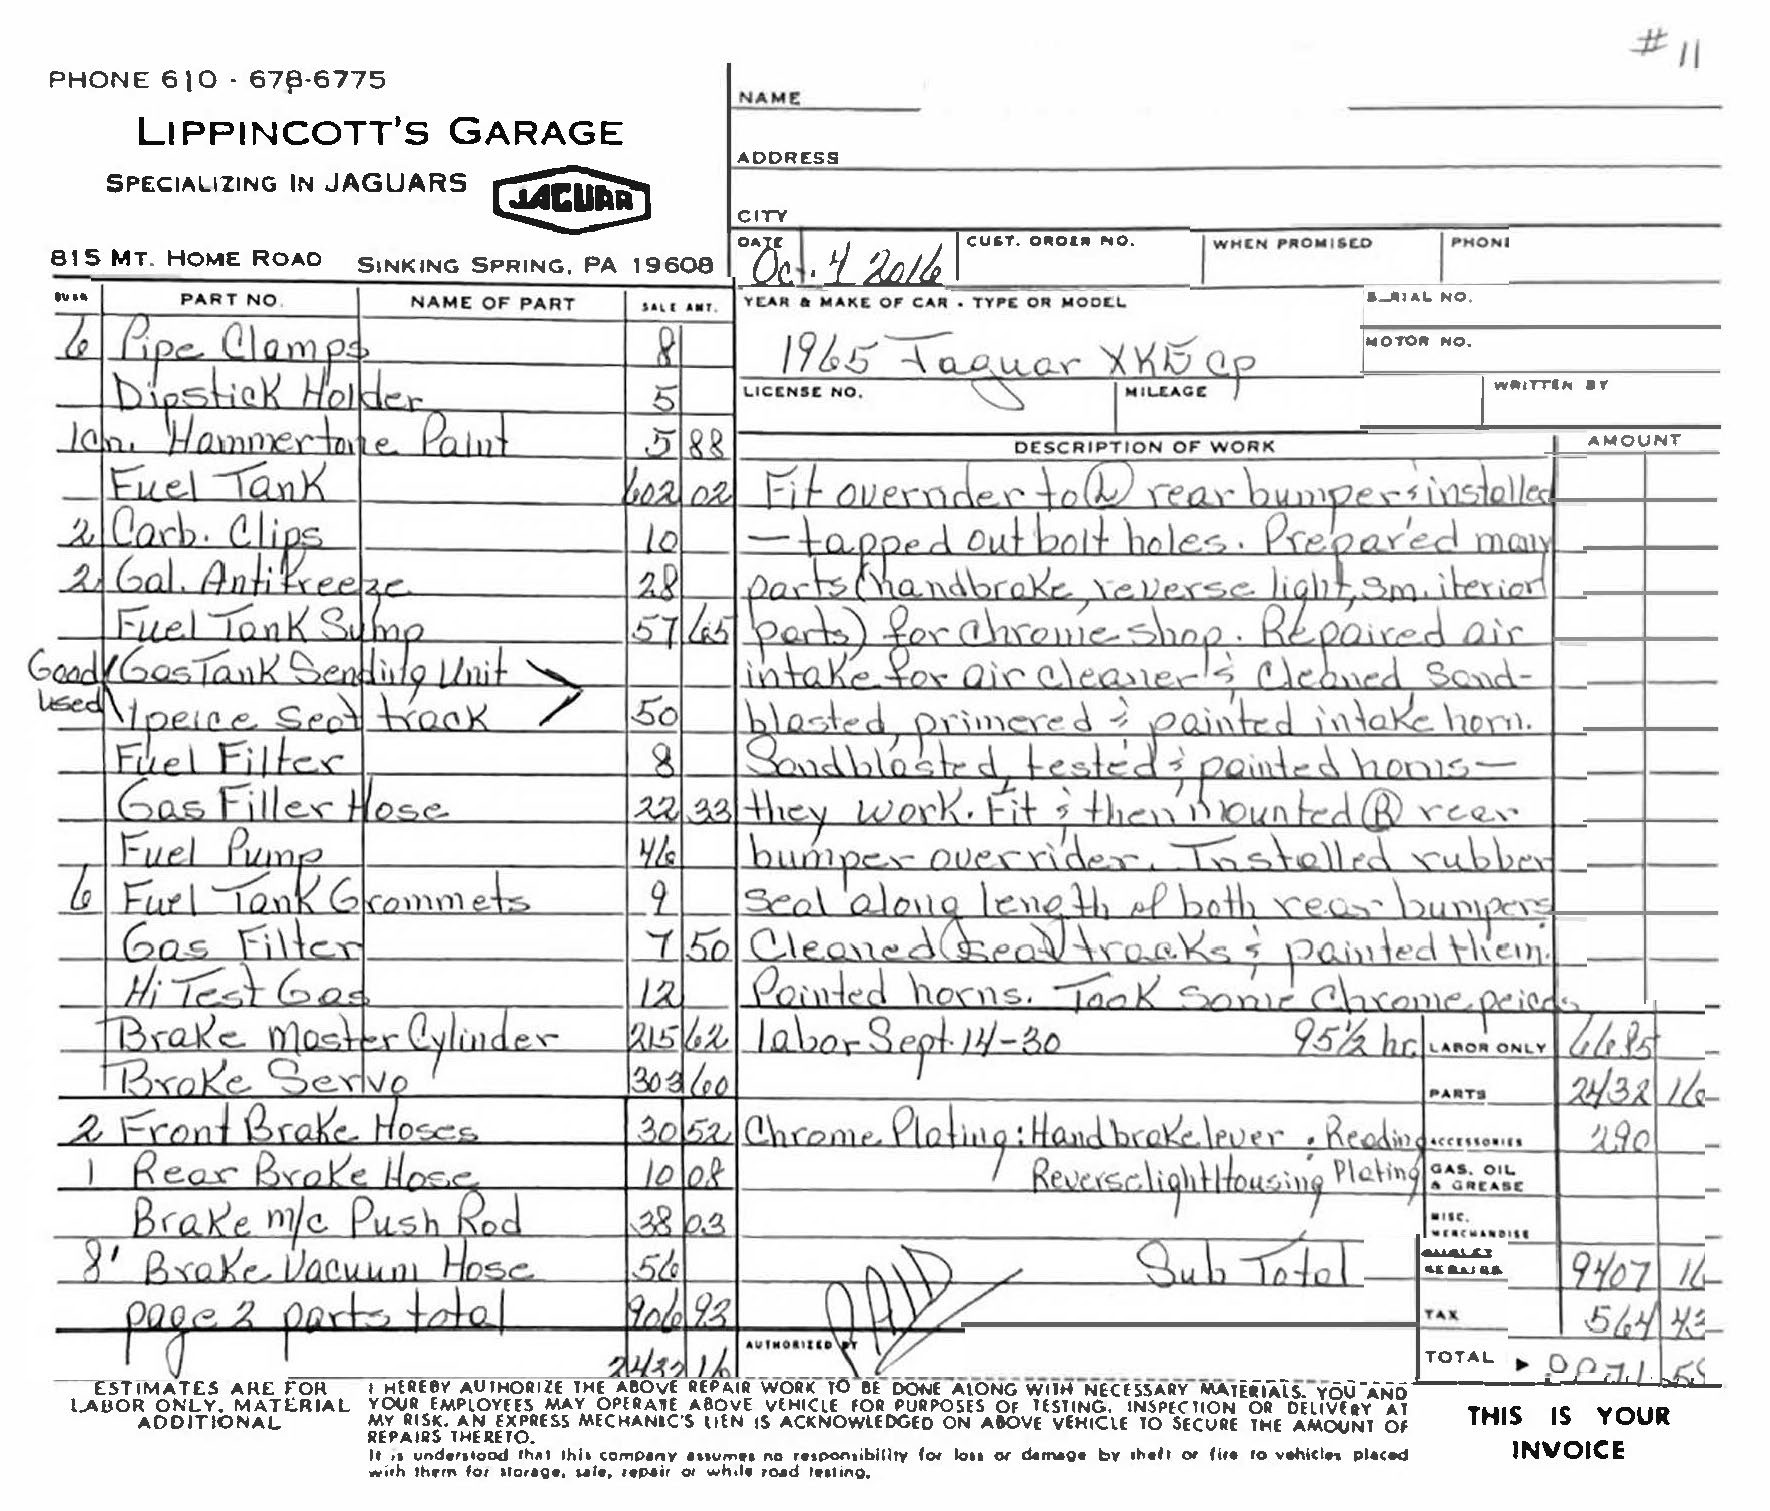 # 11
PHONE 610 - 678-6775
LIPPINCOTT'S GARAGE
SPECIALIZING IN JAGUARS
JAGUAR
815 MT. HOME ROAD SINKING SPRING, PA 19608
NAME
ADDRESS
CITY
DATE Oct. 4 2016 CUST. ORDER NO. WHEN PROMISED PHON
YEAR & MAKE OF CAR - TYPE OR MODEL SERIAL NO.
1965 Jaguar XKE cp MOTOR NO.
LICENSE NO. MILEAGE WRITTEN BY
PART NO. NAME OF PART SALE AMT.
6 Pipe Clamps 8
Dipstick Holder 5
1 cn. Hammertone Paint 5 88
Fuel Tank 602 02
2 Carb. Clips 10
2 Gal. Antifreeze 28
Fuel Tank Sump 57 65
Good Gas Tank Sending Unit
Used 1 peice seat track 50
Fuel Filter 8
Gas Filler Hose 22 33
Fuel Pump 46
6 Fuel Tank Grommets 9
Gas Filter 7 50
Hi Test Gas 12
Brake Master Cylinder 215 62
Brake Servo 303 60
2 Front Brake Hoses 30 52
1 Rear Brake Hose 10 08
Brake m/c Push Rod 38 03
8' Brake Vacuum Hose 56
page 2 parts total 906 93
2432 16
DESCRIPTION OF WORK AMOUNT
Fit overrider to (L) rear bumper & installed
— tapped out bolt holes. Prepared many
parts (handbrake, reverse light, sm. iterior
parts) for chrome shop. Repaired air
intake for air cleaner & cleaned sand-
blasted, primered & painted intake horn.
Sandblasted, tested & painted horns —
they work. Fit & then mounted (R) rear
bumper overrider. Installed rubber
seal along length of both rear bumpers
Cleaned (seat) tracks & painted them.
Painted horns. Took some chrome peices
labor Sept. 14-30 95½ hr. LABOR ONLY 6685
PARTS 2432 16
Chrome Plating: Handbrake lever . Reading ACCESSORIES 290
Reverse light Housing Plating GAS, OIL & GREASE
MISC. MERCHANDISE
Sub Total 9407 16
TAX 564 43
AUTHORIZED BY PAID
TOTAL 9971 59
ESTIMATES ARE FOR
LABOR ONLY, MATERIAL
ADDITIONAL
I HEREBY AUTHORIZE THE ABOVE REPAIR WORK TO BE DONE ALONG WITH NECESSARY MATERIALS. YOU AND
YOUR EMPLOYEES MAY OPERATE ABOVE VEHICLE FOR PURPOSES OF TESTING, INSPECTION OR DELIVERY AT
MY RISK. AN EXPRESS MECHANIC'S LIEN IS ACKNOWLEDGED ON ABOVE VEHICLE TO SECURE THE AMOUNT OF
REPAIRS THERETO.
It is understood that this company assumes no responsibility for loss or damage by theft or fire to vehicles placed
with them for storage, sale, repair or while road testing.
THIS IS YOUR
INVOICE